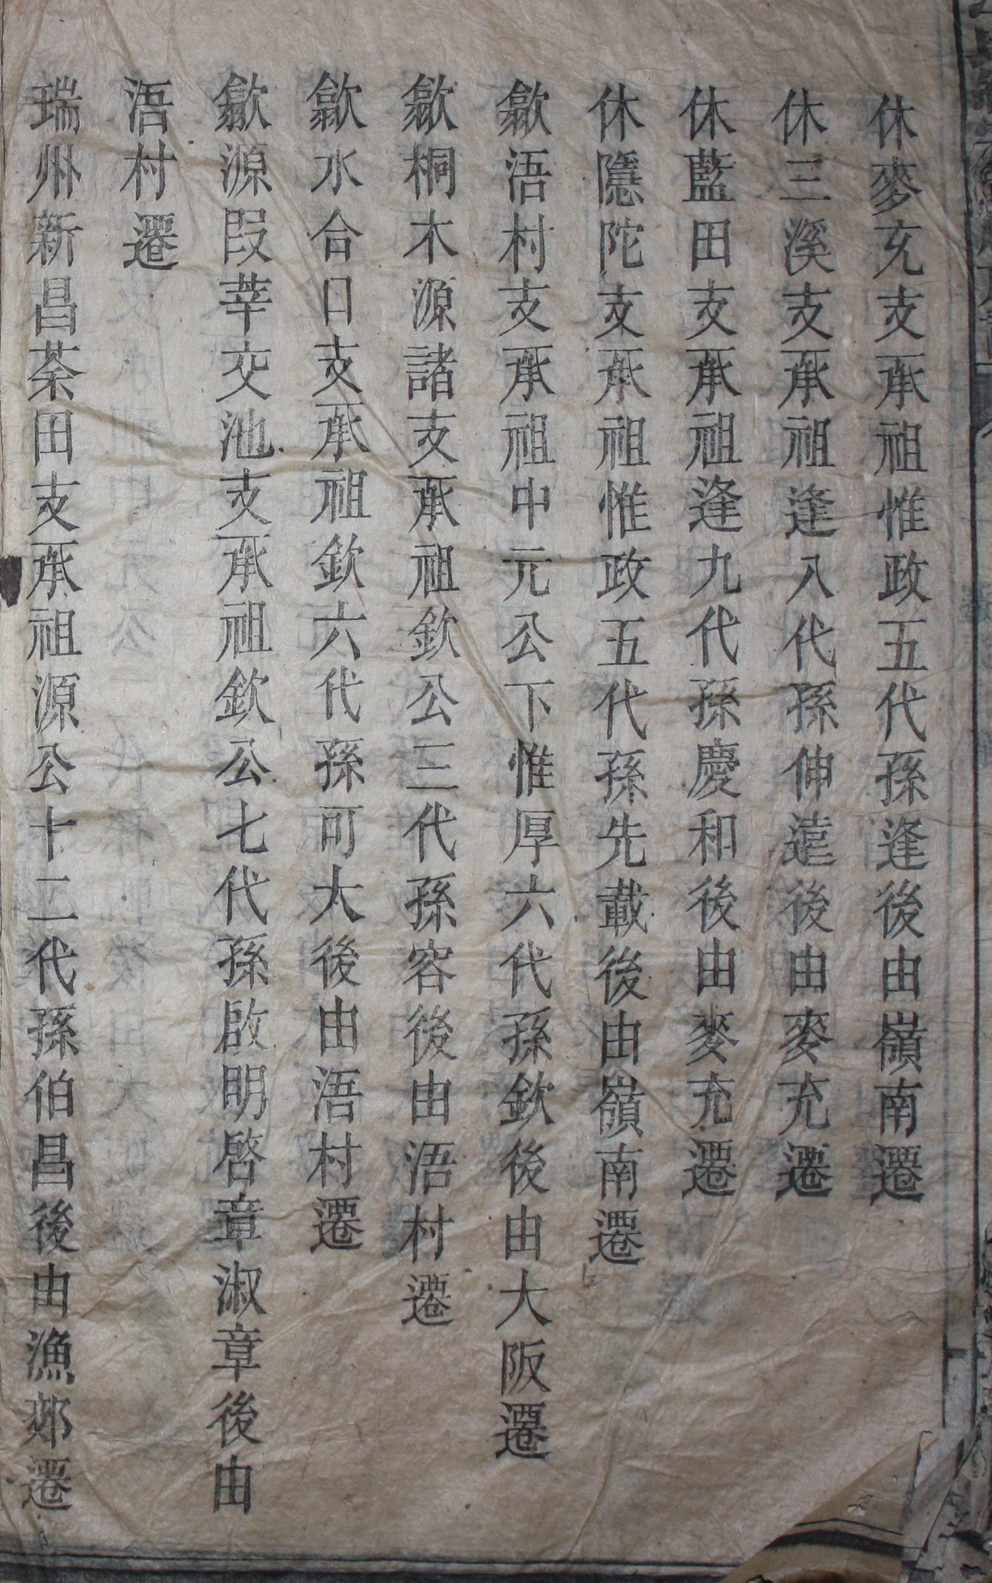 休麥充支承祖惟政五代孫逢後由嶺南遷
休三溪支承祖逢八代孫伸達後由麥充遷
休藍田支承祖逢九代孫慶和後由麥充遷
休隱陀支承祖惟政五代孫先載後由嶺南遷
歙浯村支承祖中元公下惟厚六代孫欽後由大阪遷
歙桐木源諸支承祖欽公三代孫容後由浯村遷
歙水合口支承祖欽六代孫可大後由浯村遷
歙源叚莘交池支承祖欽公七代孫啟明啓章淑章後由
浯村遷
瑞州新昌荼田支承祖源公十二代孫伯昌後由漁郊遷